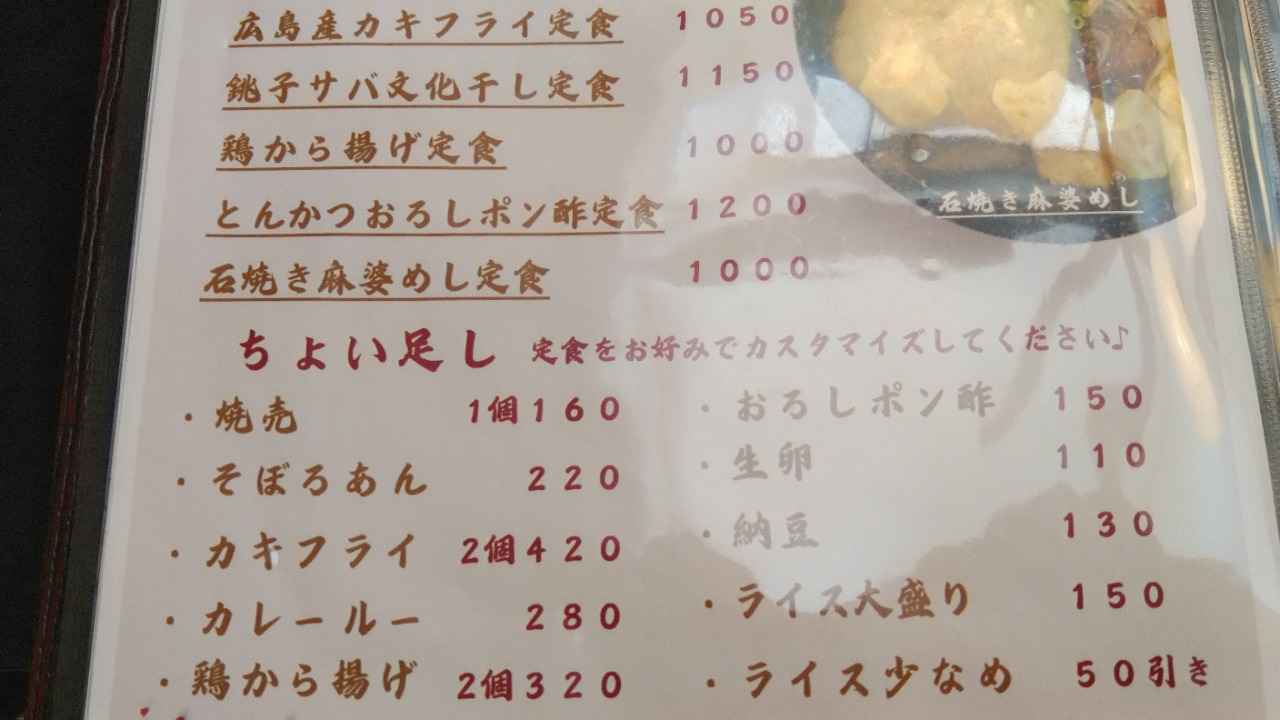 広島産カキフライ定食 1050
銚子サバ文化干し定食 1150
鶏から揚げ定食 1000
とんかつおろしポン酢定食 1200
石焼き麻婆めし
石焼き麻婆めし定食 1000
ちょい足し 定食をお好みでカスタマイズしてください♪
・焼売 1個160
・そぼろあん 220
・カキフライ 2個420
・カレールー 280
・鶏から揚げ 2個320
・おろしポン酢 150
・生卵 110
・納豆 130
・ライス大盛り 150
・ライス少なめ 50引き